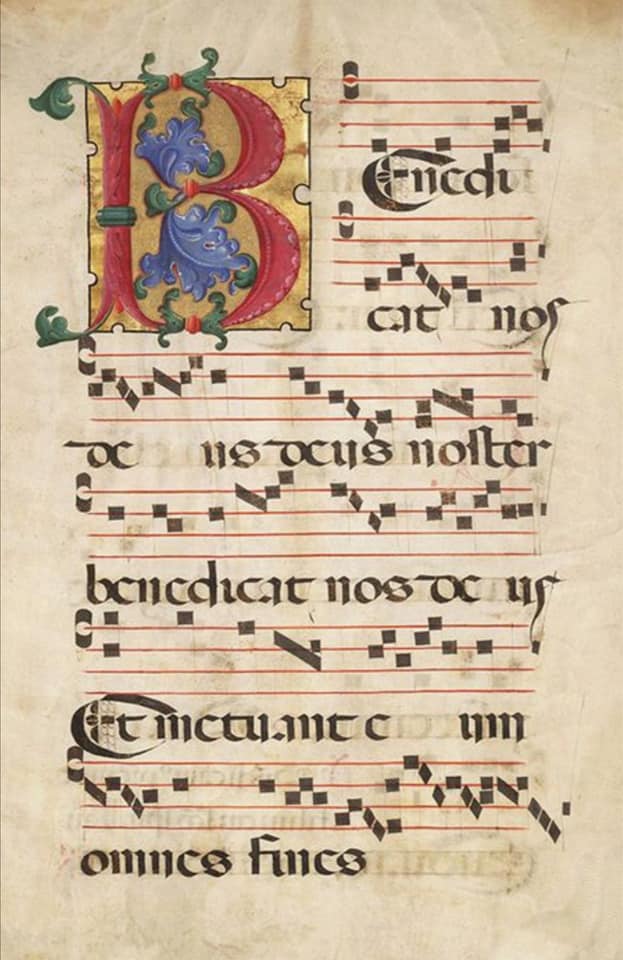 BEnedi
cat nos
de us deus noster
benedicat nos de us
Et metuant e um
omnes fines